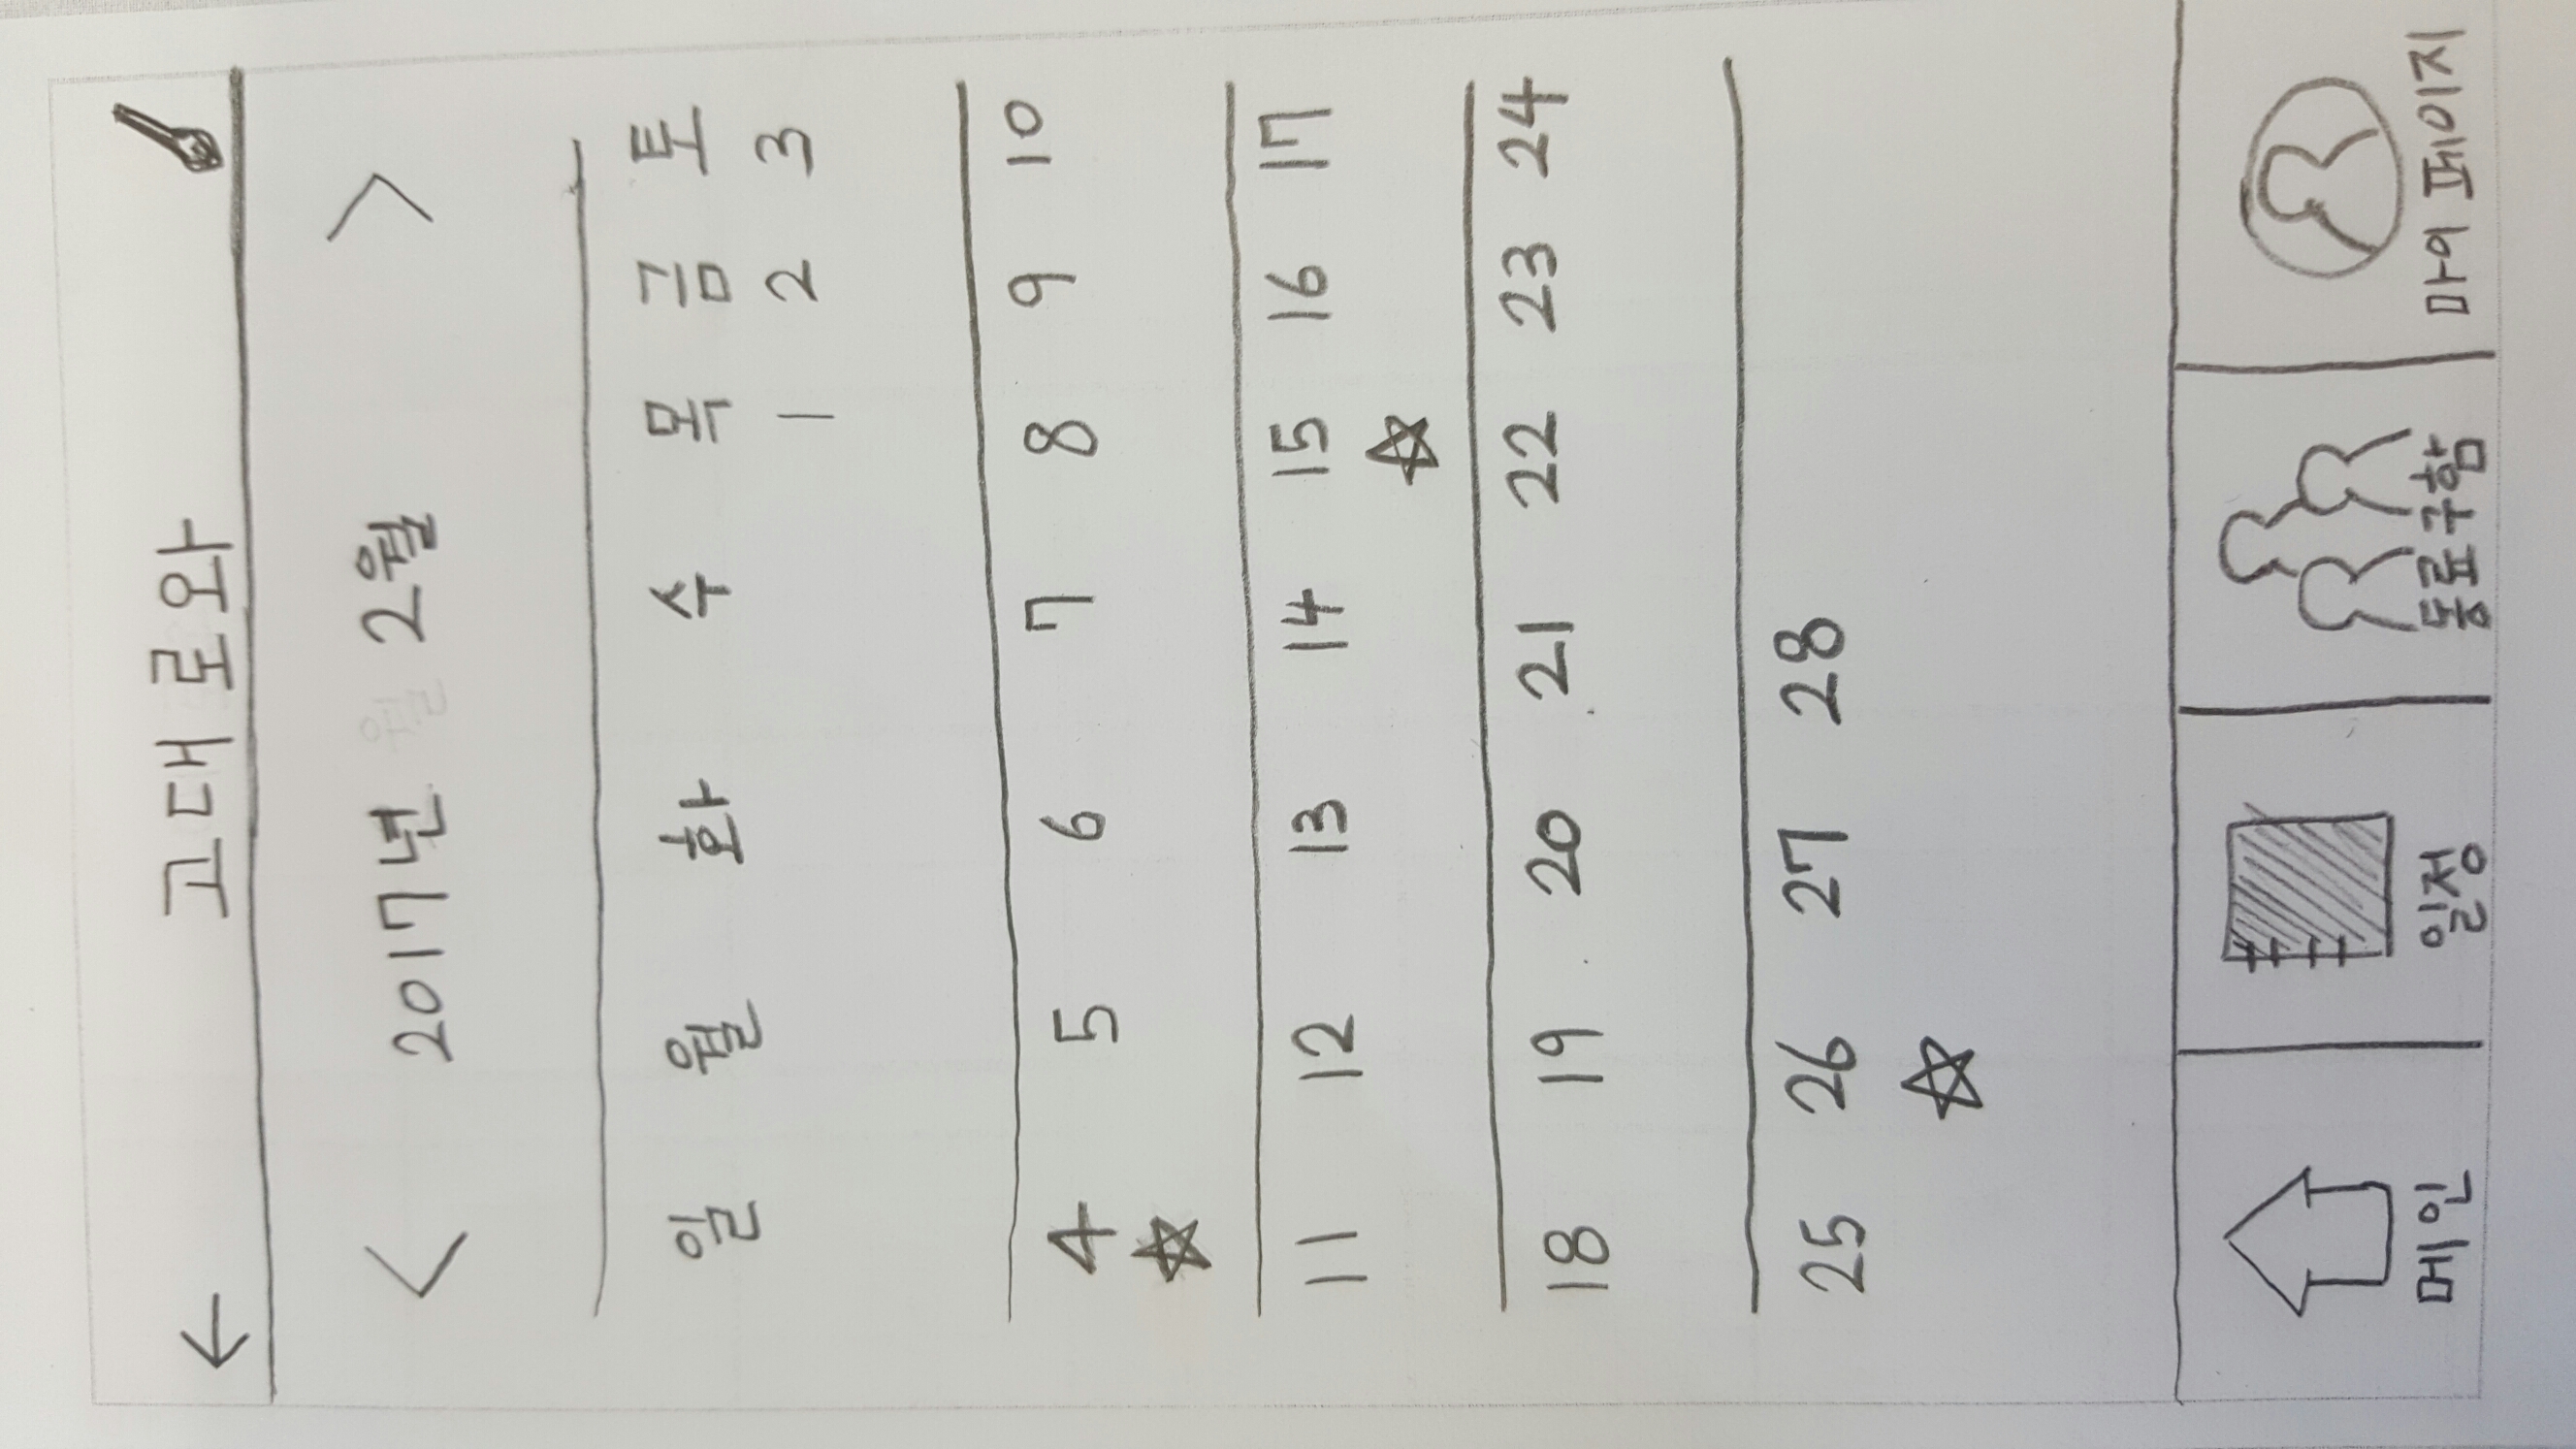 고대로와
2017년 월 2월
일 월 화 수 목 금 토
1 2 3
4 5 6 7 8 9 10
11 12 13 14 15 16 17
18 19 20 21 22 23 24
25 26 27 28
메인 일정 동료구함 마이 페이지